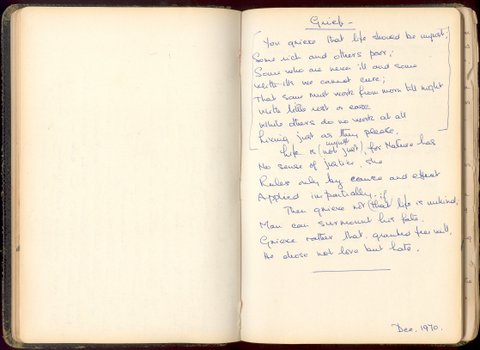 Grief –
You grieve that life should be unjust,
Some rich and others poor;
Some who are never ill and some
With ills we cannot cure;
That some must work from morn till night
With little rest or ease
While others do no work at all
Living just as they please.
unjust
Life is (not just), for Nature has
No sense of justice, she
Rules only by cause and effect
Applied impartially.
Then grieve not (that) life is unkind,
Man can surmount his fate.
Grieve rather that, granted free will,
He chose not love but hate.
Dec. 1970.